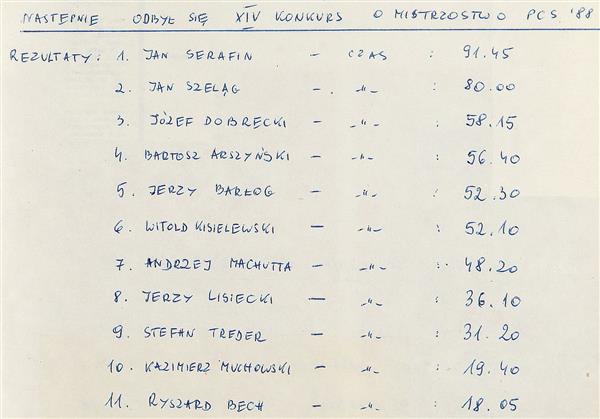 NASTĘPNIE ODBYŁ SIĘ XIV KONKURS O MISTRZOSTWO PCS '88
REZULTATY: 1. JAN SERAFIN – CZAS : 91.45
2. JAN SZELĄG – . –"– : 80.00
3. JÓZEF DOBRĘCKI – –"– : 58.15
4. BARTOSZ ARSZYŃSKI – –"– : 56.40
5. JERZY BARŁOG – –"– : 52.30
6. WITOLD KISIELEWSKI – –"– : 52.10
7. ANDRZEJ MACHUTTA – –"– : 48.20
8. JERZY LISIECKI – –"– : 36.10
9. STEFAN TREDER – –"– : 31.20
10. KAZIMIERZ MUCHOWSKI – –"– : 19.40
11. RYSZARD BECH – –"– : 18.05